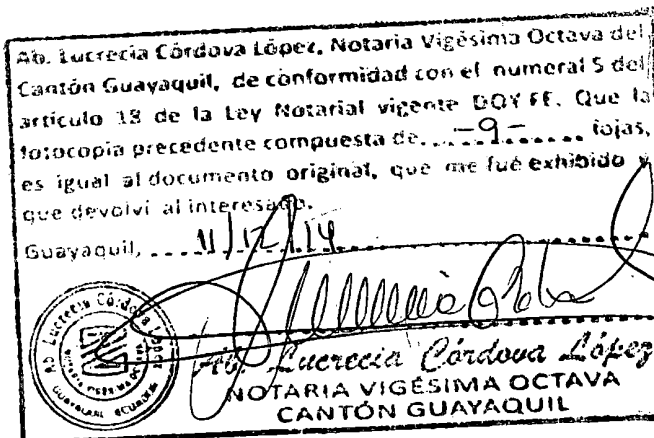 Ab. Lucrecia Córdova López, Notaria Vigésima Octava del
Cantón Guayaquil, de conformidad con el numeral 5 del
artículo 18 de la Ley Notarial vigente DOY FE. Que la
fotocopia precedente compuesta de. -9- fojas,
es igual al documento original, que me fué exhibido y
que devolví al interesado.
Guayaquil, 11/12/14
Ab. Lucrecia Córdova
GUAYAQUIL ECUADOR
Ab. Lucrecia Córdova López
NOTARIA VIGÉSIMA OCTAVA
CANTÓN GUAYAQUIL